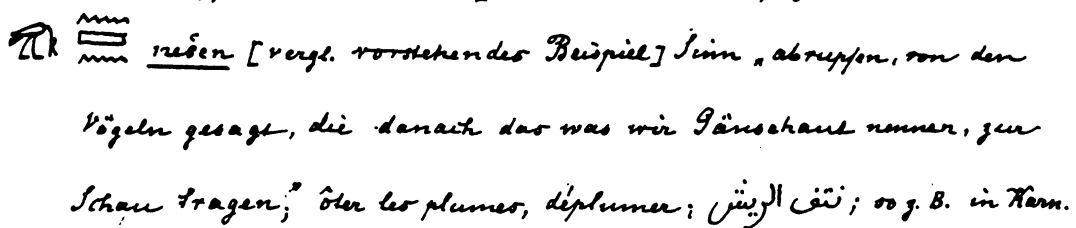 nešen [vergl. vorstehendes Beispiel] Sinn „abrupfen, von den
Vögeln gesagt, die danach das was wir Gänsehaut nennen, zur
Schau tragen;" ôter les plumes, déplumer; نتف الريش; so z. B. in Karn.